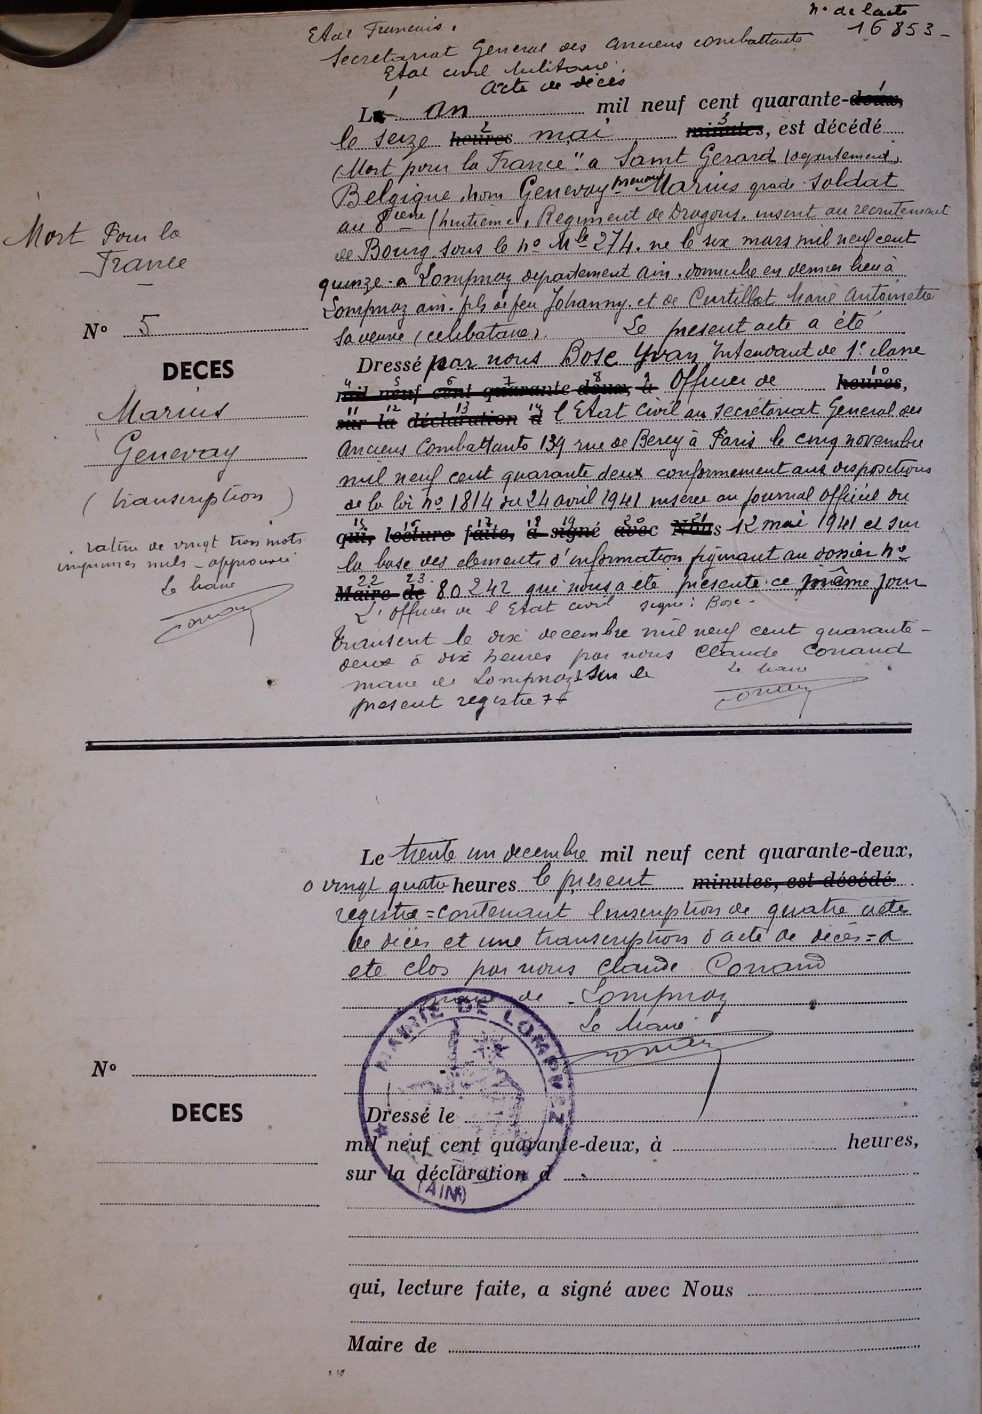 n° de l'acte
16853
Etat Francais.
Secretariat General des anciens combattants
Etat civil Militaire
acte de décès
L'an mil neuf cent quarante-deux,
le seize heures mai minutes, est décédé
(Mort pour la France" a Saint Gerard (departement)
Belgique, nom Genevay prenom Marius grade soldat
au 8 ieme (huitieme), Regiment de Dragons, inscrit au recrutement
de Bourg sous le n° Mle 274. ne le six mars mil neuf cent
quinze. a Lompnaz departement ain. domicilie en dernier lieu à
Lompnaz ain. fils de feu Johanny. et de Curtillet Marie Antoinette
sa veuve (celibataire). Le present acte a été
Dressé par nous Bosc Yvan Intendant de 1e classe
mil neuf cent quarante-deux, à Officier de heures,
sur la déclaration d l'Etat Civil au secrétariat General des
Anciens Combattants 139 rue de Bercy à Paris le cinq novembre
mil neuf cent quarante deux conformement aux dispositions
de la loi n° 1814 du 24 avril 1941 inserée au Journal Officiel du
qui, lecture faite, a signé avec Nous 12 mai 1941 et sur
la base des elements d'information figurant au dossier n°
Maire de 80242 qui nous a ete presente ce même jour
L'Officier de l'Etat civil signé: Bosc.
transcrit le dix decembre mil neuf cent quarante-
deux à dix heures par nous Claude Conand
maire de Lompnaz sur le
present registre
Le Maire
Mort Pour la
France
N° 5
DECES
Marius
Genevay
(transcription)
rature de vingt trois mots
imprimes nuls - approuvée
Le Maire
Le trente un decembre mil neuf cent quarante-deux,
a vingt quatre heures le present minutes, est décédé
registre = contenant l'inscription de quatre acte
de décès et une transcription d'acte de décès = a
ete clos par nous Claude Conand
maire de Lompnaz
Le Maire
MAIRIE DE LOMPNEZ
(AIN)
N°
DECES
Dressé le
mil neuf cent quarante-deux, à heures,
sur la déclaration d
qui, lecture faite, a signé avec Nous
Maire de